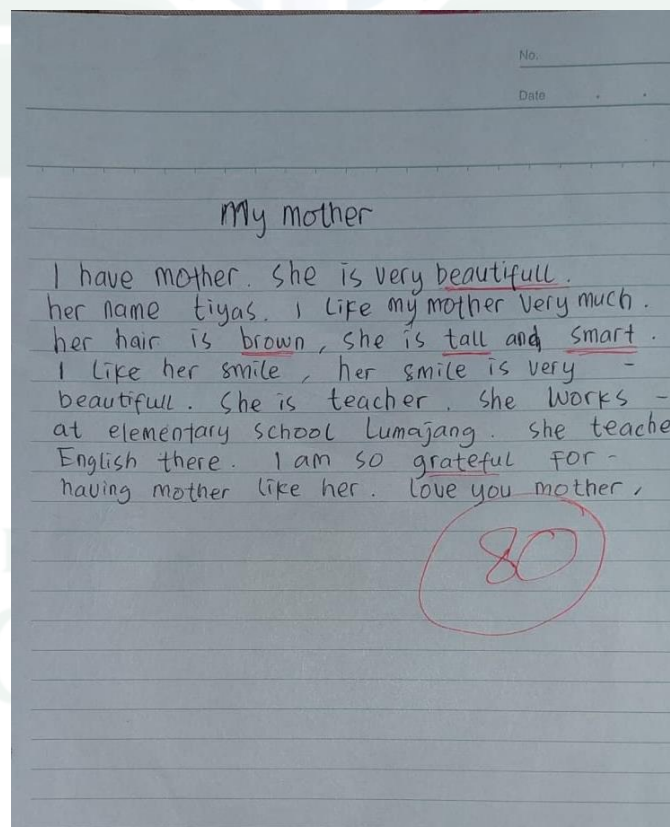 No.
Date
My mother
I have mother. she is very beautifull.
her name tiyas. I like my mother very much.
her hair is brown, she is tall and smart.
I like her smile, her smile is very -
beautifull. She is teacher. she works -
at elementary school Lumajang. she teache
English there. I am so grateful for -
having mother like her. love you mother,
80